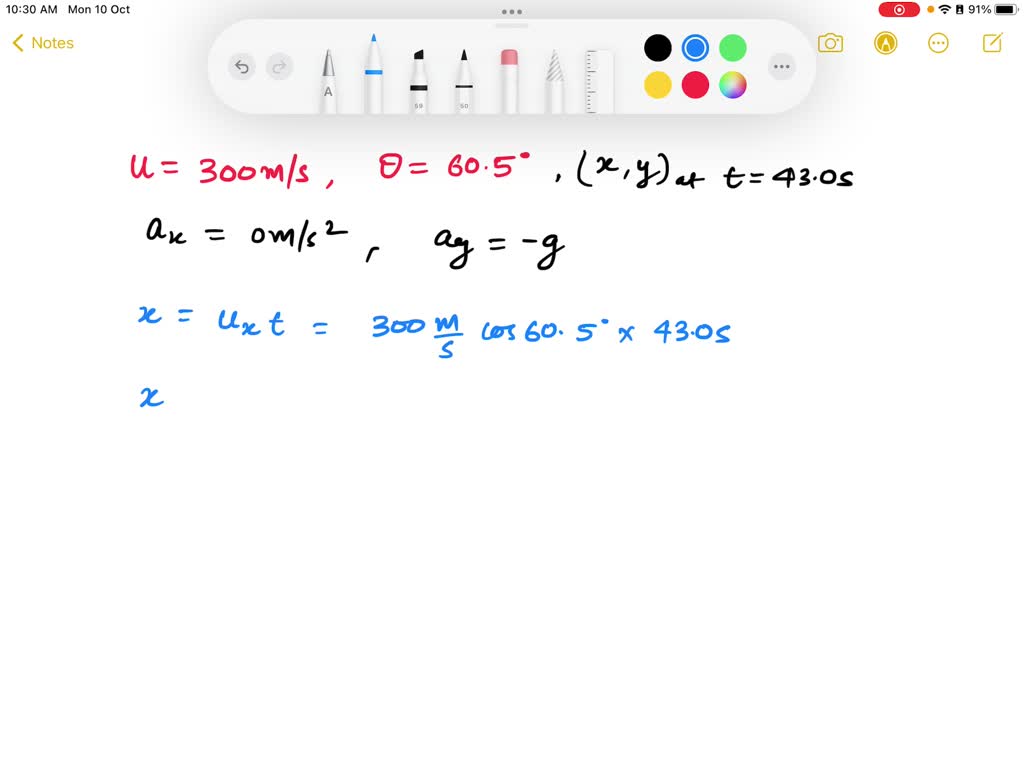 10:30 AM Mon 10 Oct
91%
Notes
A
59
50
u = 300 m/s, θ = 60.5°, (x, y) at t = 43.0s
ax = 0 m/s², ay = -g
x = uxt = 300 m/s cos 60.5° × 43.0s
x